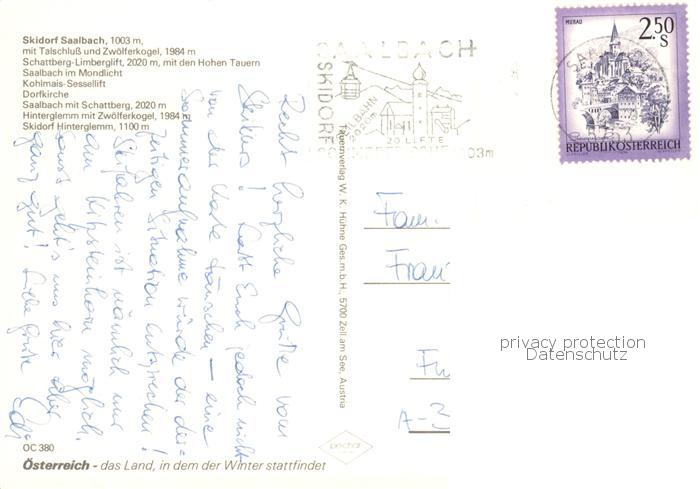 Skidorf Saalbach, 1003 m,
mit Talschluß und Zwölferkogel, 1984 m
Schattberg-Limberglift, 2020 m, mit den Hohen Tauern
Saalbach im Mondlicht
Kohlmais-Sessellift
Dorfkirche
Saalbach mit Schattberg, 2020 m
Hinterglemm mit Zwölferkogel, 1984 m
Skidorf Hinterglemm, 1100 m
SAALBACH
SKIDORF
20 LIFTE
1003m
MURAU
2.50
S
REPUBLIK ÖSTERREICH
Recht herzliche Grüße vom
Skikurs! Laßt Euch jedoch nicht
von der Karte täuschen – eine
Sommeraufnahme würde der der-
zeitigen Situation entsprechen!
Skifahren ist nämlich nur
am Kitzsteinhorn möglich,
sonst geht's uns hier aber
ganz gut! Liebe Grüße
Tauernverlag W. K. Hühne Ges.m.b.H., 5700 Zell am See, Austria
Fam.
Franz
A-3
privacy protection
Datenschutz
pechar
OC 380
Österreich - das Land, in dem der Winter stattfindet